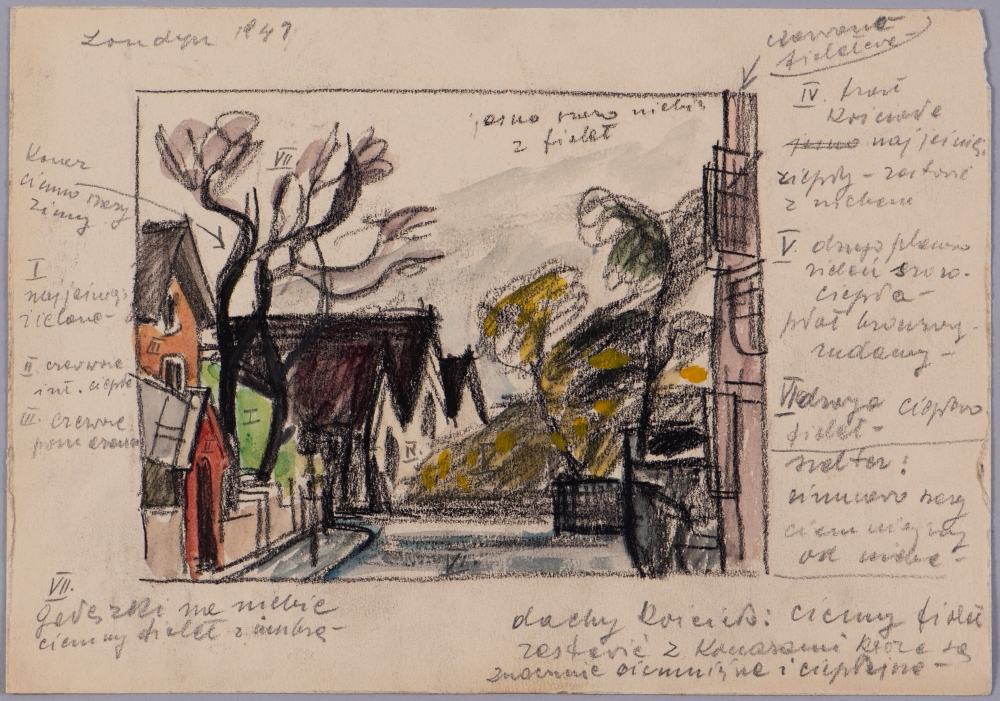 Londyn 1949
czerwono
fioletowe
jasno szaro niebies
z fiolet
VII
Konar
ciemno szary
zimny
I
najjaśniejsza
zielona-
II czerwone
int. ciepłe
III. czerwone
pomarańcz
III
I
II
IV
V
IV. front
Kościoła
jasno najjaśniej
ciepły - zestawić
z niebem
V drugi plan
zieleń szaro-
ciepła-
płot brązowy-
rudawy-
VI droga ciepławo
fiolet-
szelter:
szary
ciemniejszy
od nieba-
VII.
gałązki na niebie
ciemny fiolet z umbrą-
dachy Kościoła: ciemny fiolet
zestawić z Konarami które są
znacznie ciemniejsze i cieplejsze-